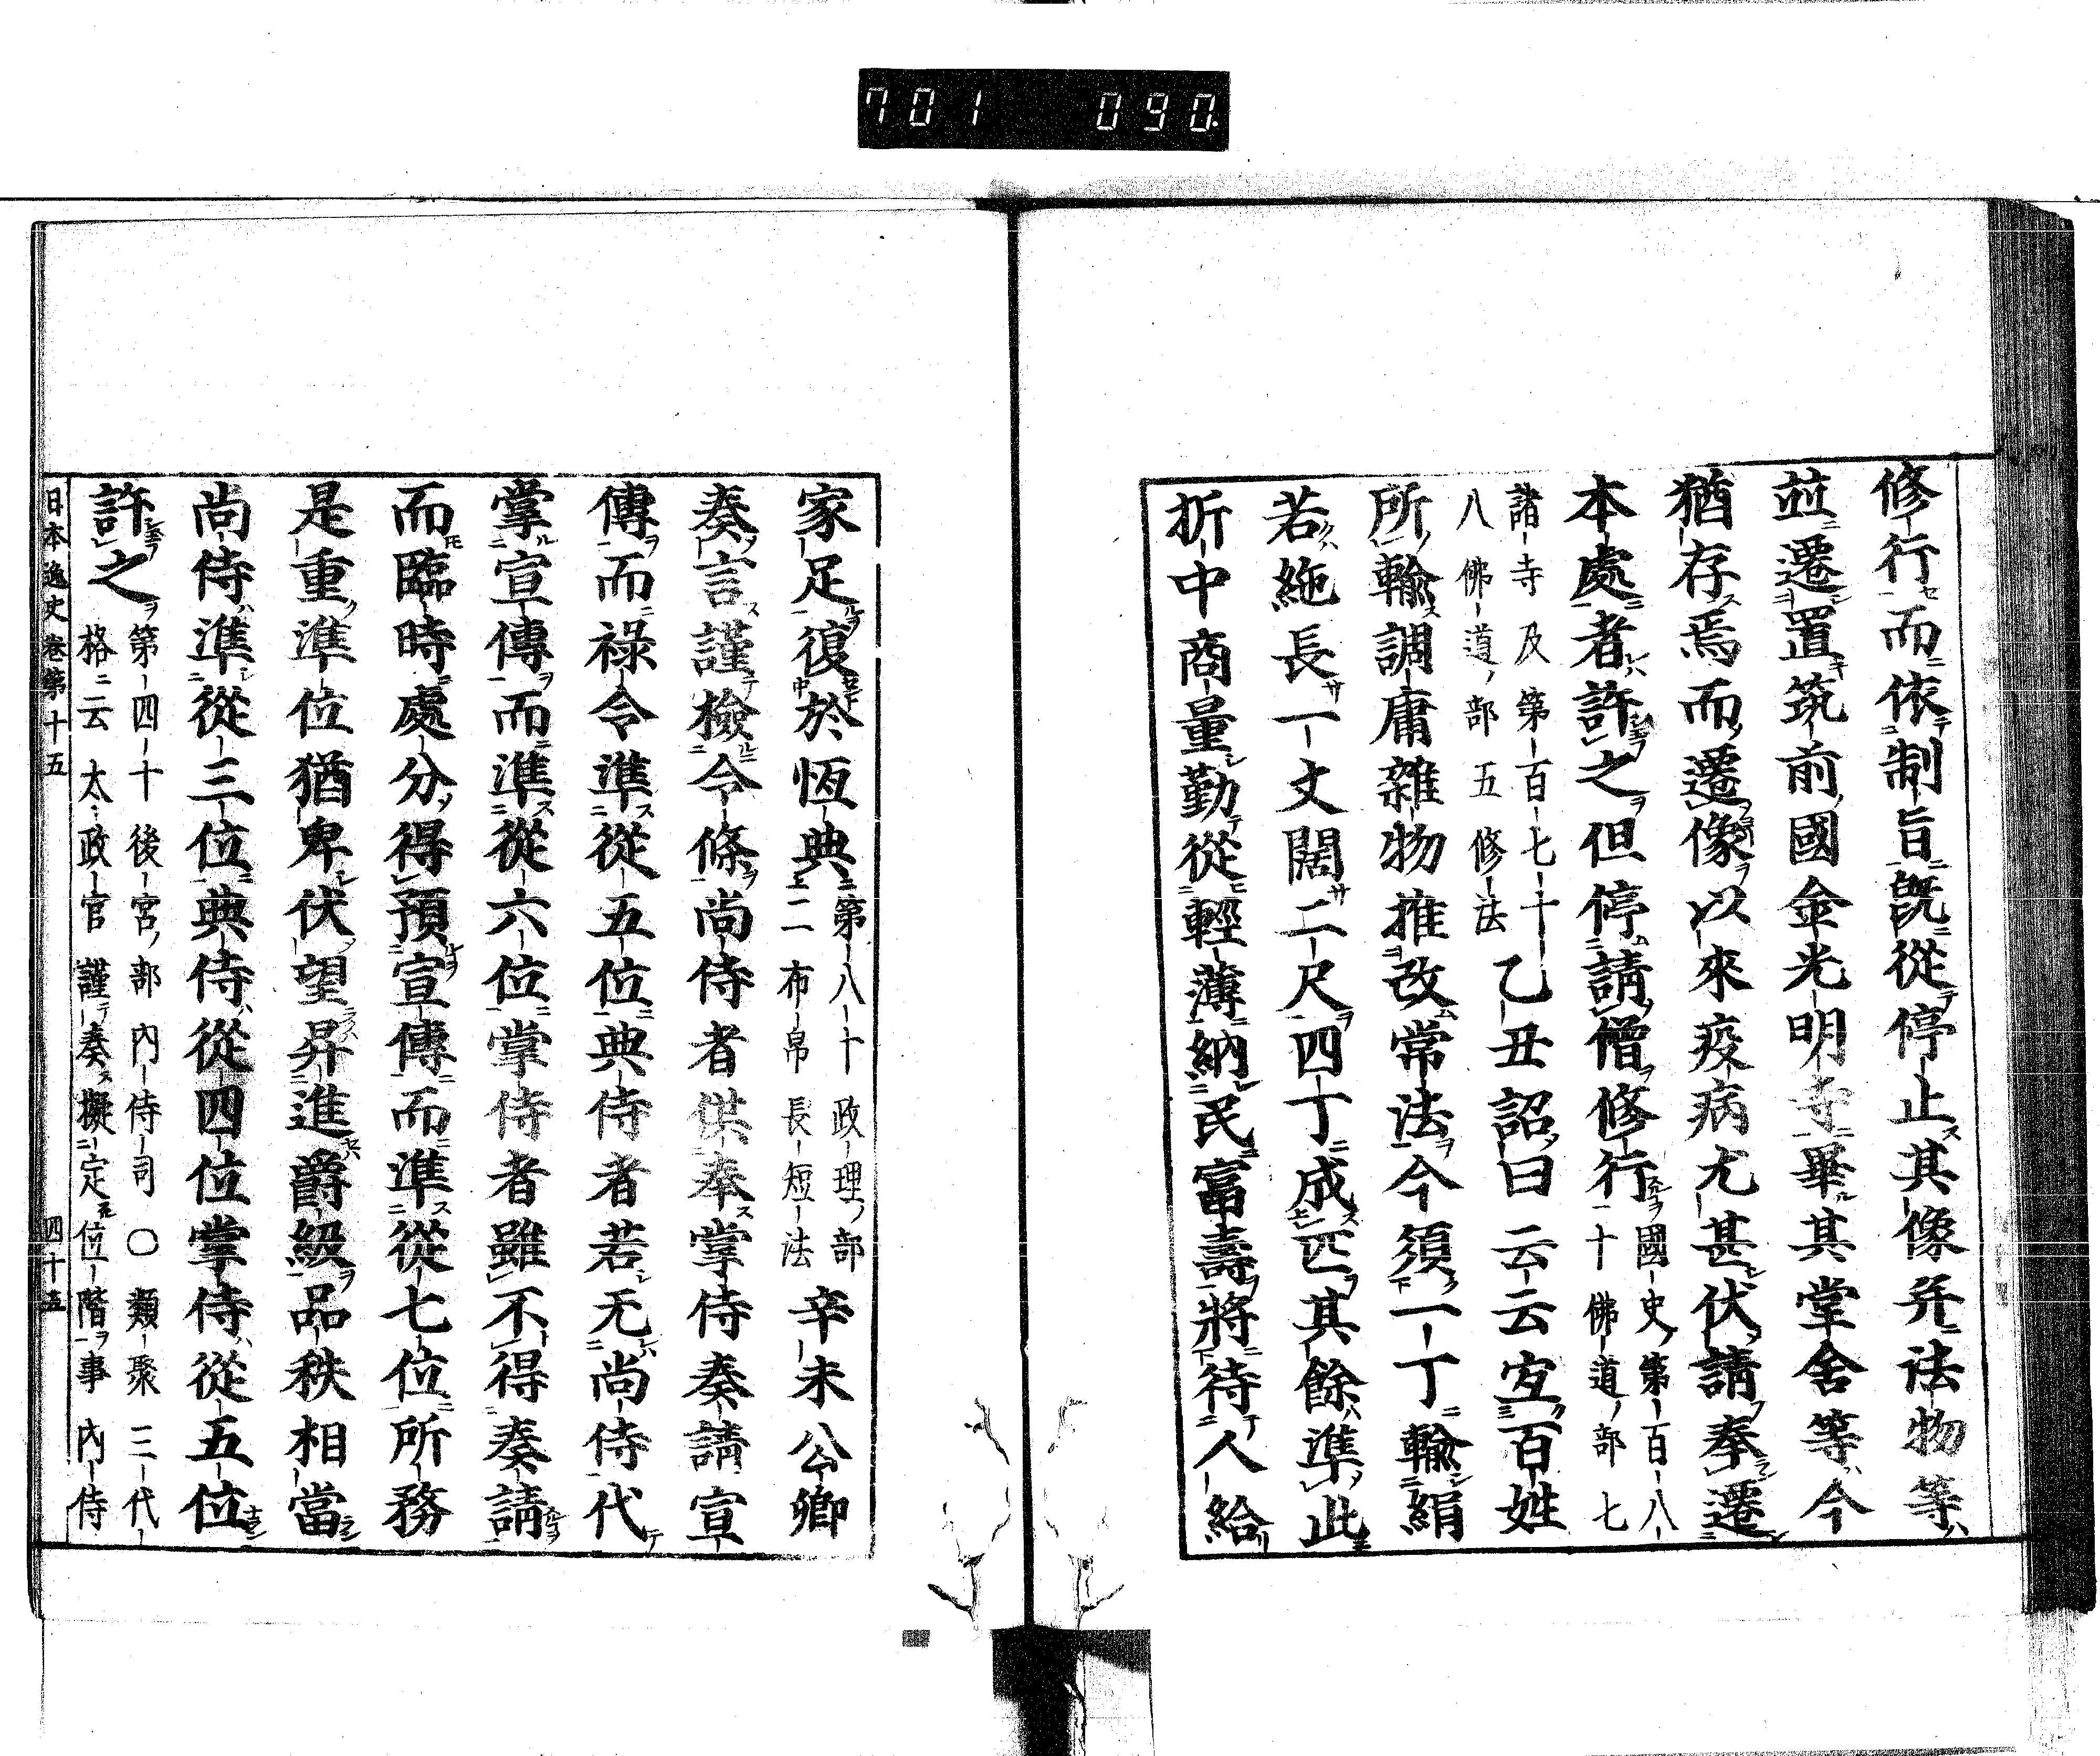 701 090
修行而依制旨既從停止其像幷法物等
並遷置筑前國金光明寺畢其堂舍等今
猶存焉而遷像以來疫病尤甚伏請奉遷
本處者許之但停請僧修行國史第百八十佛道部七
諸寺及第百七十八佛道部五修法乙丑詔曰云云宜百姓
所輸調庸雜物推改常法今須一丁輸絹
若絁長一丈闊二尺四丁成匹其餘準此
折中商量勤從輕薄納民富壽將待人給
家足復於恆典第八十政理部二布帛長短法辛未公卿
奏言謹檢令條尚侍者供奉掌侍奏請宣
傳而祿令準從五位典侍者若无尚侍代
掌宣傳而準從六位掌侍者雖不得奏請
而臨時處分得預宣傳而準從七位所務
是重準位猶卑伏望昇進爵級品秩相當
尚侍準從三位典侍從四位掌侍從五位
許之第四十後宮部內侍司〇類聚三代格云太政官謹奏擬定位階事內侍
日本逸史卷第十五 四十五